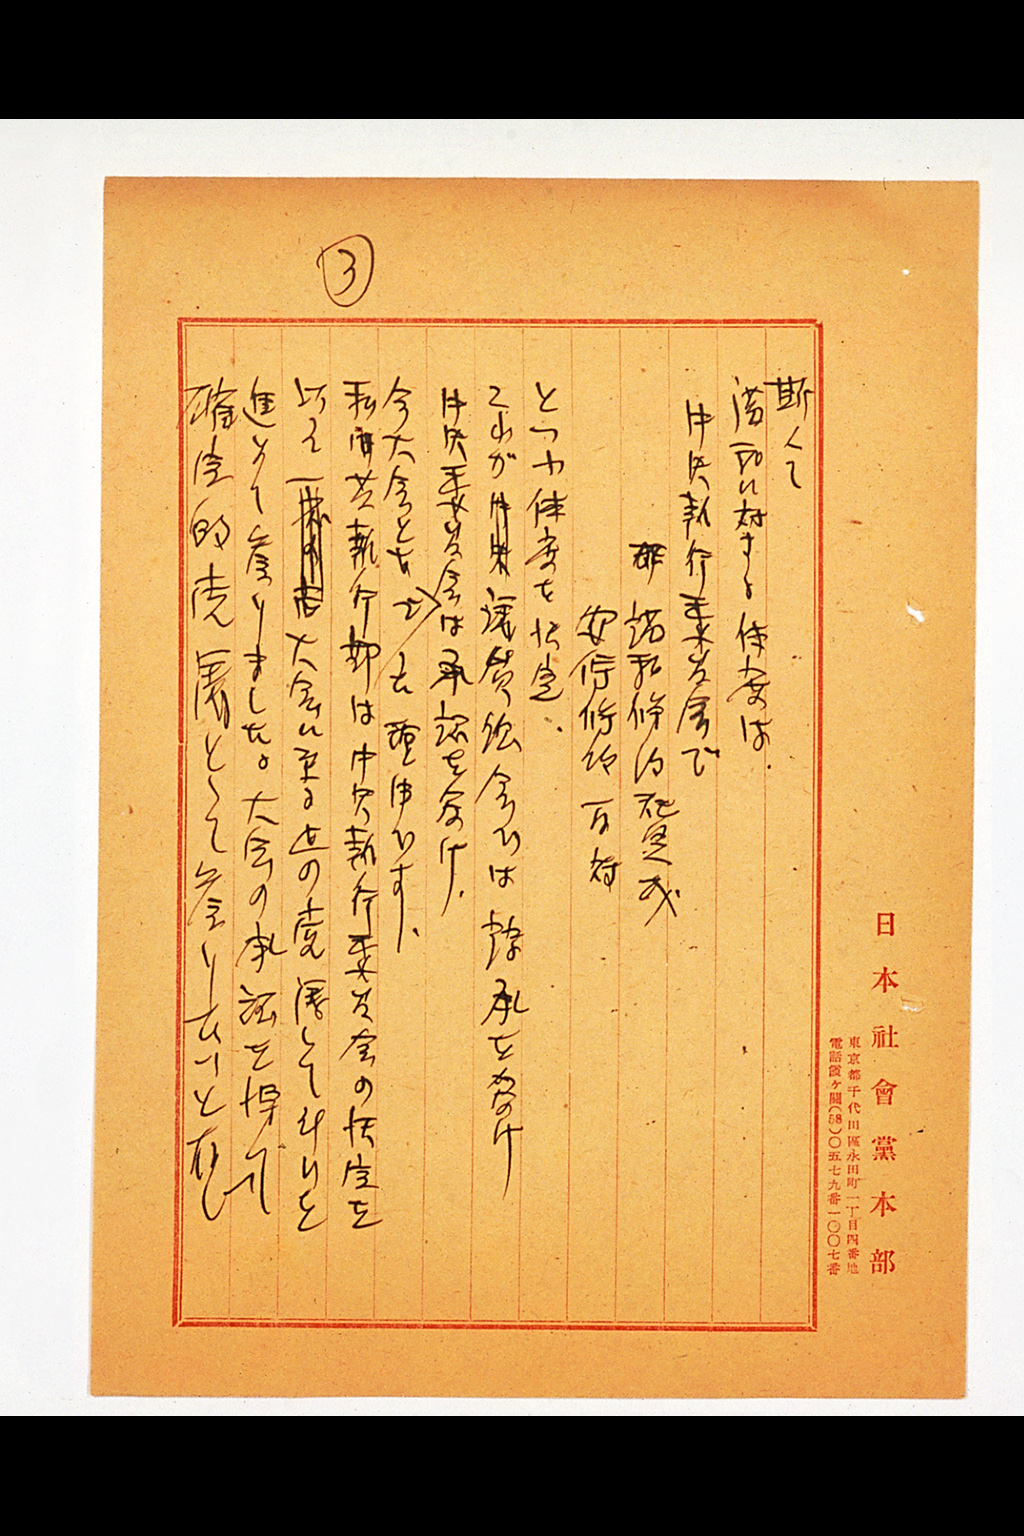 ③
斯くて
講和に対する体度は.
中央執行委員会で
講和條約賛成
安保條約反対
という体度を決定.
これが 議員総会では 諒承を受け
中央委員会は承認を受け.
今大会となった 理由です.
私共執行部は中央執行委員会の決定を
以て 大会に至る迄の
進めて参りました。大会の承認を得て
確定的 として参りたいと存じ
日本社會黨本部
東京都千代田區永田町一丁目四番地
電話霞ヶ關(58)〇五七九番一〇〇七番